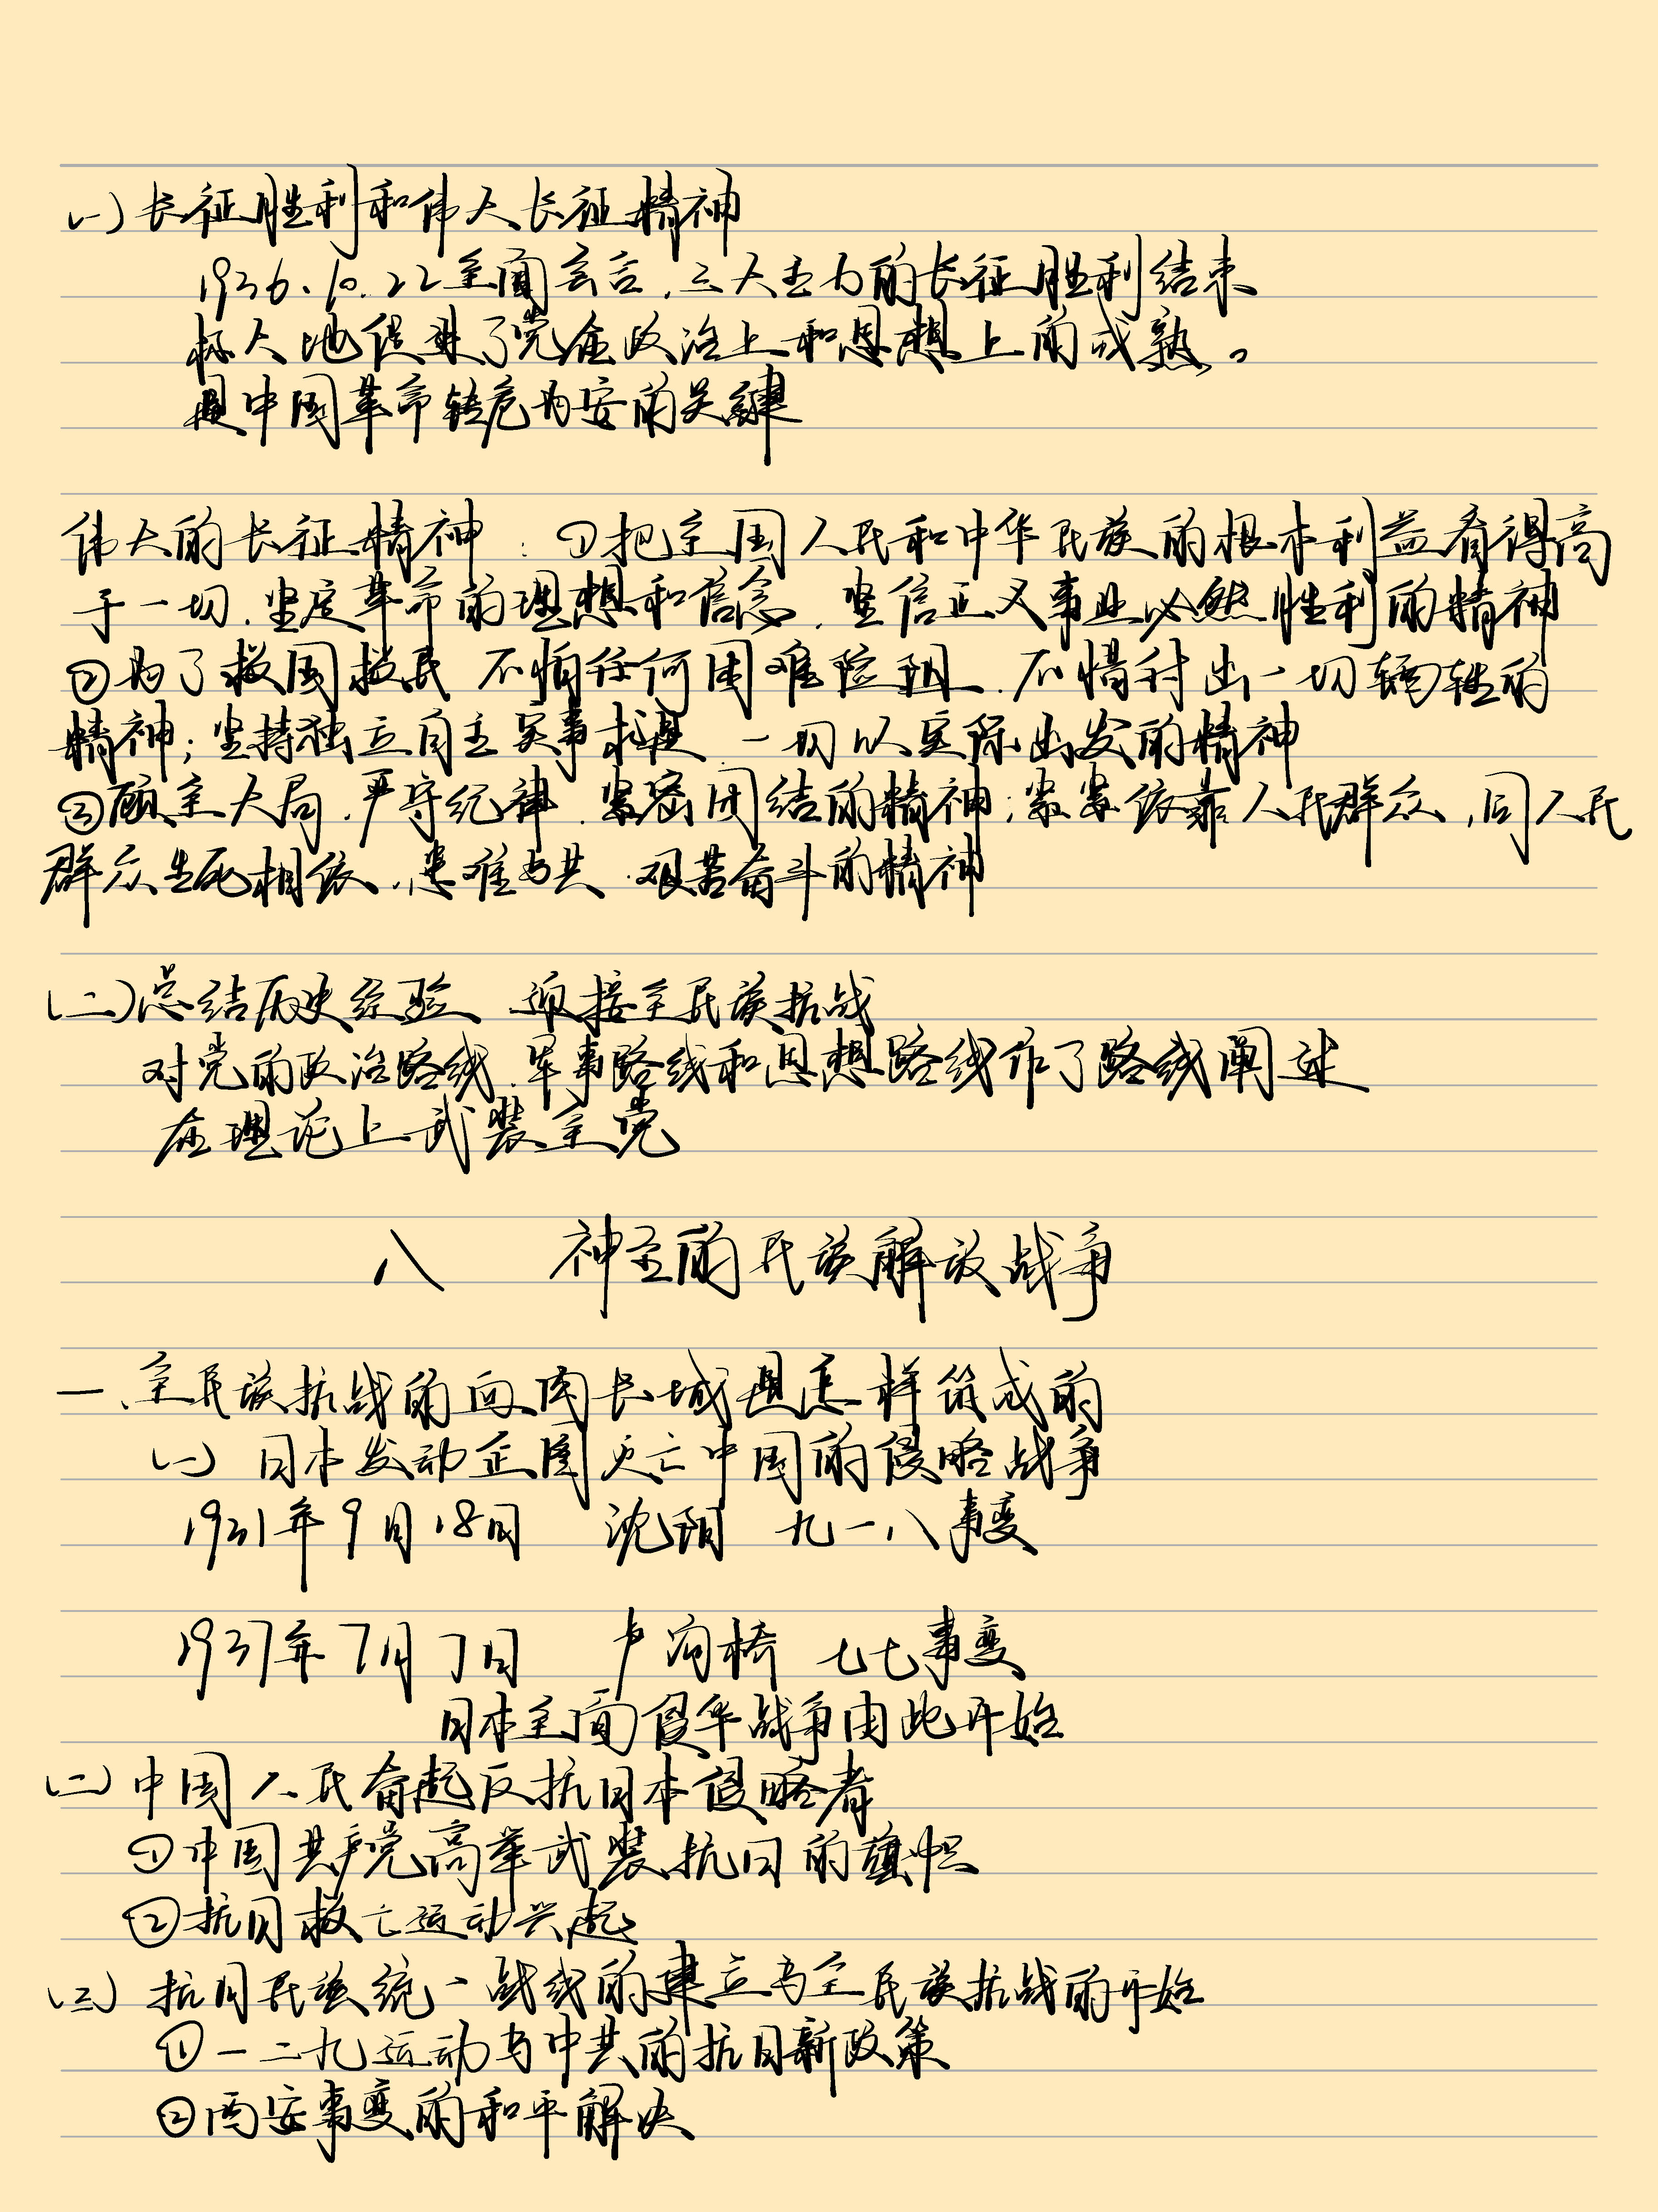 (一)长征胜利和伟大长征精神
1936.10.22全面宣言,三大主力的长征胜利结束
极大地促进了党在政治上和思想上的成熟。
是中国革命转危为安的关键
伟大的长征精神:①把全国人民和中华民族的根本利益看得高
于一切,坚定革命的理想和信念,坚信正义事业必然胜利的精神
②为了救国救民 不怕任何困难险阻、不惜付出一切牺牲的
精神;坚持独立自主实事求是、一切以实际出发的精神
③顾全大局、严守纪律、紧密团结的精神;紧紧依靠人民群众,同人民
群众生死相依、患难与共、艰苦奋斗的精神
(二)总结历史经验、迎接全民族抗战
对党的政治路线、军事路线和思想路线作了路线阐述
在理论上武装全党
八 神圣的民族解放战争
一、全民族抗战的血肉长城是怎样筑成的
(一) 日本发动企图灭亡中国的侵略战争
1931年9月18日 沈阳 九一八事变
1937年7月7日 卢沟桥 七七事变
日本全面侵华战争由此开始
(二) 中国人民奋起反抗日本侵略者
①中国共产党高举武装抗日的旗帜
②抗日救亡运动兴起
(三) 抗日民族统一战线的建立与全民族抗战的开始
①一二九运动与中共的抗日新政策
②西安事变的和平解决